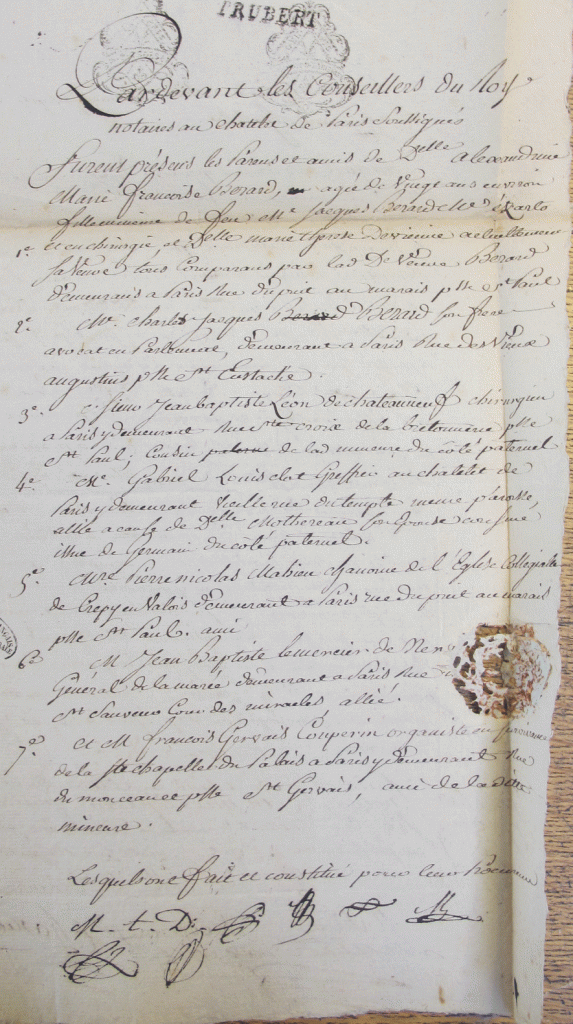 TRUBERT
Pardevant les Conseillers du Roy
notaires au chatelet de Paris soussignés
Furent présens les Parens et amis de Delle Alexandrine
Marie françoise Berard, agée de vingt ans environ
fille mineure de feu Me Jacques Berard Me
1e. et en chirurgie, et Delle marie therese actuellement
sa veuve tous Comparans par lad De Veuve Berard
demeurant a Paris Rue du puit au marais psse St Paul
2e. Me. Charles Jacques Berard Berard son frere
avocat en Parlement, demeurant a Paris Rue des Vieux
augustins psse St Eustache.
3e. Sieur Jean baptiste Léon de chateauneuf chirurgien
a Paris y demeurant Rue Ste croix de la bretonnerie psse
St Paul; Cousin paterne de lad mineure du côté paternel
4e. Me. Gabriel Louis Greffier au chatelet de
Paris y demeurant Vieille rue du temple meme paroisse,
allié a cause de Delle Mothereau son epouse
issue de Germain du côté paternel.
5e. Mre Pierre nicolas Mahieu chanoine de l'Eglise Collegialle
de Crepy en Valois demeurant a Paris rue du puit au marais
psse St Paul. ami
6e. M Jean Baptiste lemercier de
Général de la marée demeurant a Paris Rue
St Sauveur Cour des miracles, allié.
7e. et M françois Gervais Couperin organiste en survivance
de la ste chapelle du Palais a Paris y demeurant Rue
du monceau psse St Gervais, ami de la ditte
mineure.
Lesquels ont fait et constitué pour leur Procureur
M. t. D.